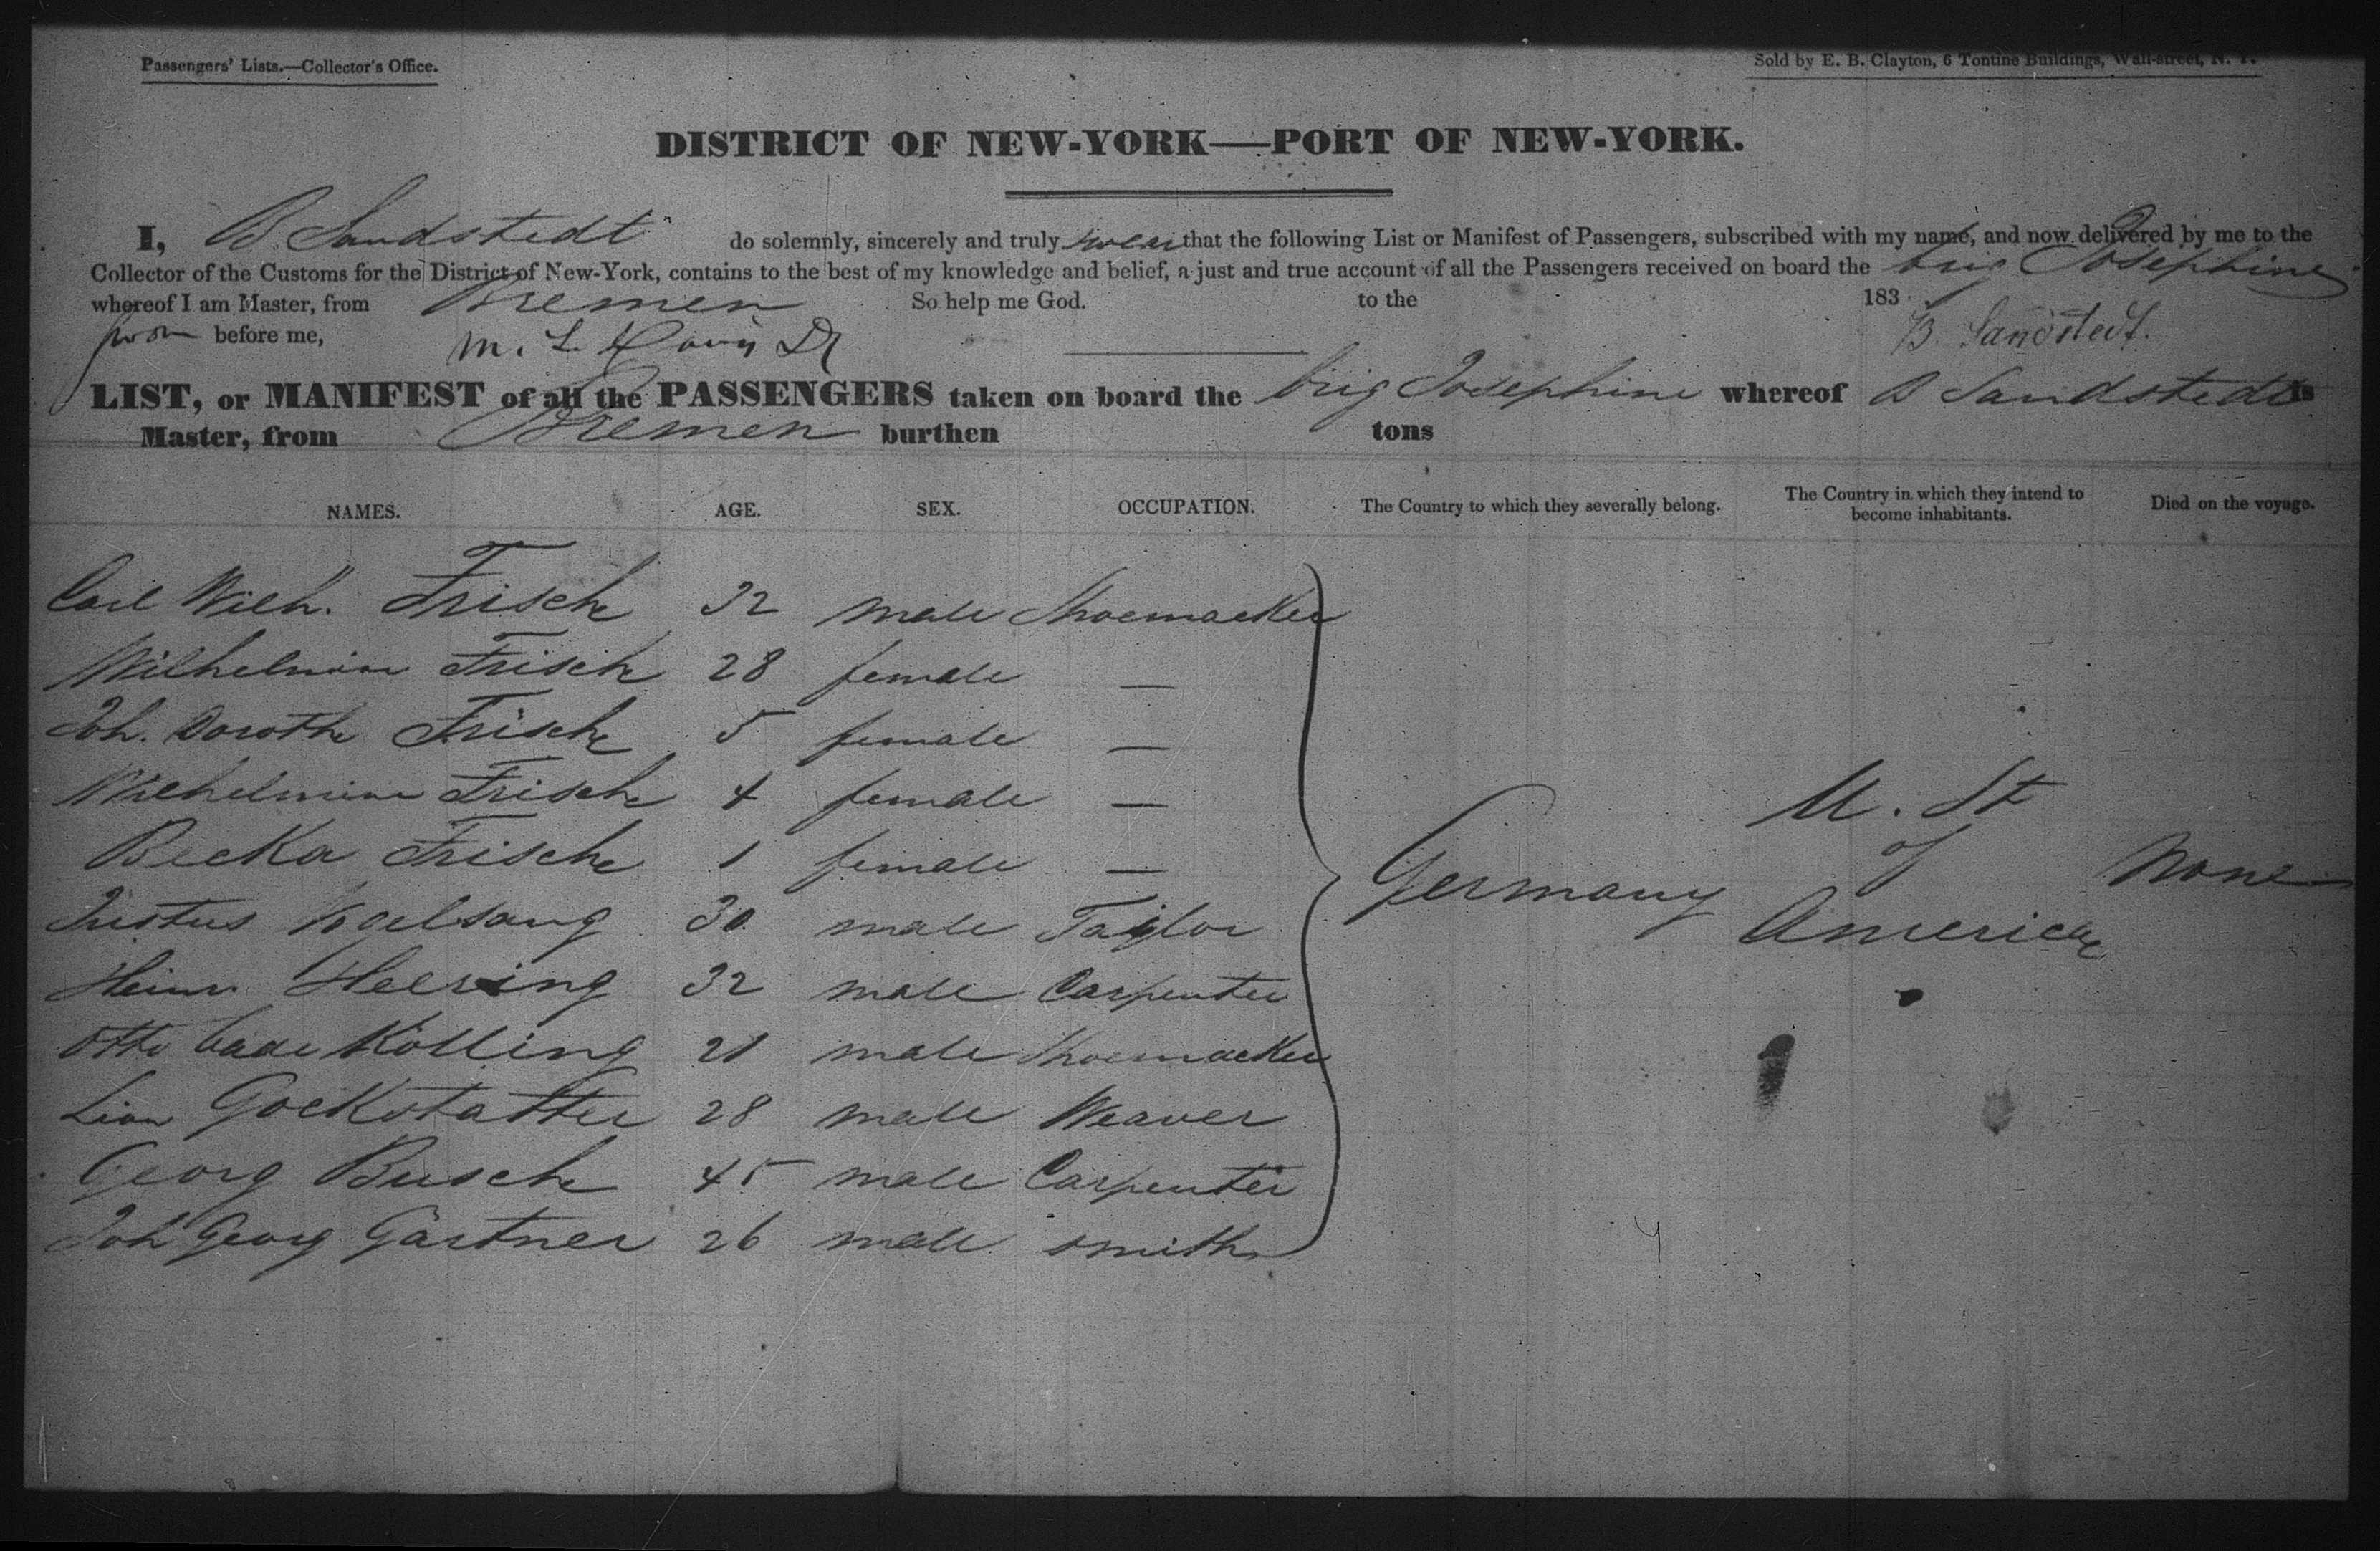 Passengers' Lists.—Collector's Office.
Sold by E. B. Clayton, 6 Tontine Buildings, Wall-street, N. Y.
DISTRICT OF NEW-YORK—PORT OF NEW-YORK.
I, B. Sandstedt do solemnly, sincerely and truly swear that the following List or Manifest of Passengers, subscribed with my name, and now delivered by me to the
Collector of the Customs for the District of New-York, contains to the best of my knowledge and belief, a just and true account of all the Passengers received on board the brig Josephine
whereof I am Master, from Bremen So help me God. to the 183
before me, B. Sandstedt.
LIST, or MANIFEST of all the PASSENGERS taken on board the brig Josephine whereof B Sandstedt is
Master, from Bremen burthen tons
NAMES. AGE. SEX. OCCUPATION. The Country to which they severally belong. The Country in which they intend to become inhabitants. Died on the voyage.
Carl Wilh. Frisch 32 male Shoemacker
Wilhelmine Frisch 28 female —
Joh. Doroth Frisch 5 female —
Wilhelmine Frisch 4 female —
Becka Frisch 1 female —
Justus Vogelsang 30 male Taylor
Heinr. Heering 32 male Carpenter
Otto Kölling 21 male Shoemacker
Gockstatter 28 male Weaver
Georg Busch 45 male Carpenter
Joh Georg Gärtner 26 male smith
Germany
U. St
of
America
None